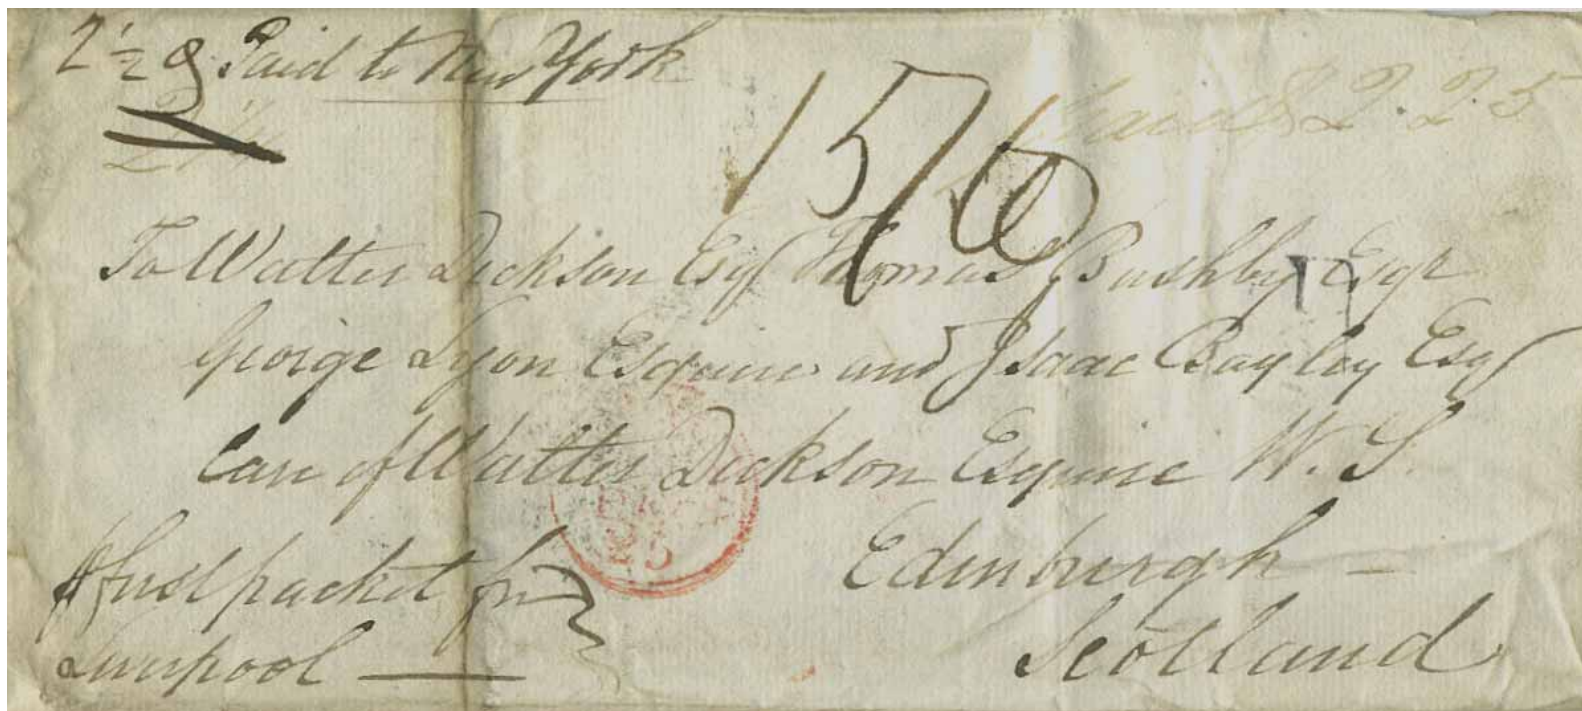 2½ Paid to New York
Paid $ 2.25
2¼
15/6
To Walter Dickson Esq Thomas Bushby Esqr
George Lyon Esquire and Isaac Bayley Esq
Care of Walter Dickson Esquire W.S.
Edinburgh –
Scotland
first packet for
Liverpool —